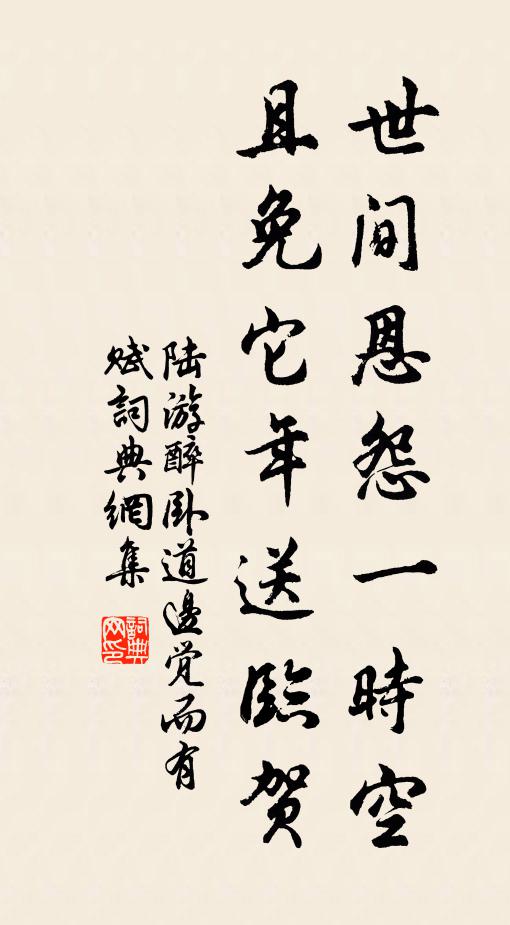 世间恩怨一時空
且免它年送臨賀
陆游醉卧道邊觉而有
赋詞典網集
詞典
网印